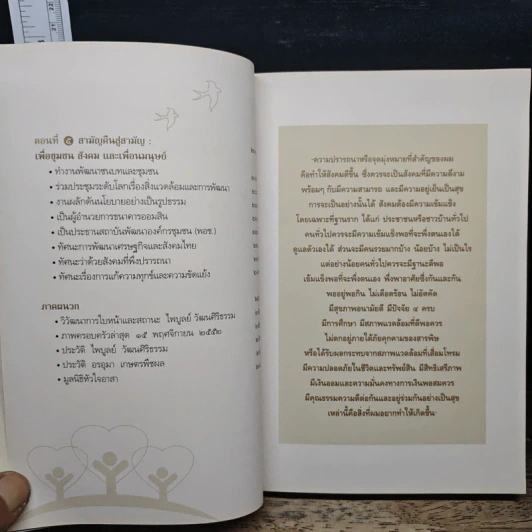 ตอนที่ ๕ สามัญคืนสู่สามัญ :
เพื่อชุมชน สังคม และเพื่อนมนุษย์
• ทำงานพัฒนาชนบทและชุมชน
• ร่วมประชุมระดับโลกเรื่องสิ่งแวดล้อมและการพัฒนา
• งานผลักดันนโยบายอย่างเป็นรูปธรรม
• เป็นผู้อำนวยการธนาคารออมสิน
• เป็นประธานสถาบันพัฒนาองค์กรชุมชน (พอช.)
• ทัศนะการพัฒนาเศรษฐกิจและสังคมไทย
• ทัศนะว่าด้วยสังคมที่พึงปรารถนา
• ทัศนะเรื่องการแก้ความทุกข์และความขัดแย้ง
ภาคผนวก
• วิวัฒนาการใบหน้าและสถานะ ไพบูลย์ วัฒนศิริธรรม
• ภาพครอบครัวล่าสุด ๑๕ พฤศจิกายน ๒๕๕๒
• ประวัติ ไพบูลย์ วัฒนศิริธรรม
• ประวัติ อรอุมา เกษตรพืชผล
• มูลนิธิหัวใจอาสา
"ความปรารถนาหรือจุดมุ่งหมายที่สำคัญของผม
คือทำให้สังคมดีขึ้น ซึ่งควรจะเป็นสังคมที่มีความดีงาม
พร้อมๆ กับมีความสามารถ และมีความอยู่เย็นเป็นสุข
การจะเป็นอย่างนั้นได้ สังคมต้องมีความเข้มแข็ง
โดยเฉพาะที่ฐานราก ได้แก่ ประชาชนหรือชาวบ้านทั่วไป
คนทั่วไปควรจะมีความเข้มแข็งพอที่จะพึ่งตนเองได้
ดูแลตัวเองได้ ส่วนจะมีคนรวยมากบ้าง น้อยบ้าง ไม่เป็นไร
แต่อย่างน้อยคนทั่วไปควรจะมีฐานะดีพอ
เข้มแข็งพอที่จะพึ่งตนเอง พึ่งพาอาศัยซึ่งกันและกัน
พออยู่พอกิน ไม่เดือดร้อน ไม่อัตคัด
มีสุขภาพอนามัยดี มีปัจจัย ๔ ครบ
มีการศึกษา มีสภาพแวดล้อมที่ดีพอควร
ไม่ตกอยู่ภายใต้ภัยคุกคามของสารพิษ
หรือได้รับผลกระทบจากสภาพแวดล้อมที่เสื่อมโทรม
มีความปลอดภัยในชีวิตและทรัพย์สิน มีสิทธิเสรีภาพ
มีเงินออมและความมั่นคงทางการเงินพอสมควร
มีคุณธรรมความดีต่อกันและอยู่ร่วมกันอย่างเป็นสุข
เหล่านี้คือสิ่งที่ผมอยากทำให้เกิดขึ้น"